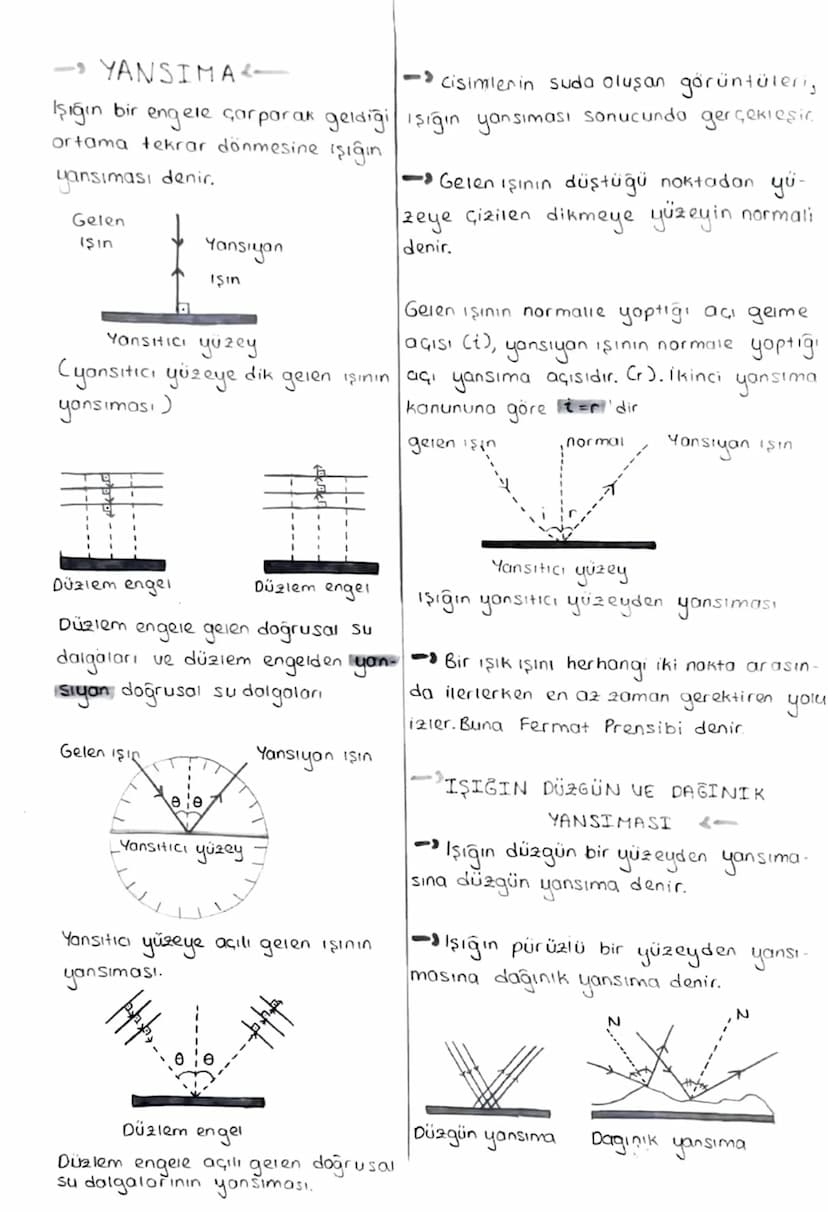 → YANSIMA ←
Işığın bir engele çarparak geldiği
ortama tekrar dönmesine ışığın
yansıması denir.
Gelen
ışın
Yansıyan
ışın
Yansıtıcı yüzey
(yansıtıcı yüzeye dik gelen ışının
yansıması)
Düzlem engel
Düzlem engel
Düzlem engele gelen doğrusal su
dalgaları ve düzlem engelden yan-
sıyan doğrusal su dalgaları
Gelen ışın
Yansıyan ışın
θ θ
Yansıtıcı yüzey
Yansıtıcı yüzeye açılı gelen ışının
yansıması.
θ θ
Düzlem engel
Düzlem engele açılı gelen doğrusal
su dalgalarının yansıması.
→ Cisimlerin suda oluşan görüntüleri,
ışığın yansıması sonucunda gerçekleşir.
→ Gelen ışının düştüğü noktadan yü-
zeye çizilen dikmeye yüzeyin normali
denir.
Gelen ışının normalle yaptığı açı gelme
açısı (i), yansıyan ışının normale yaptığı
açı yansıma açısıdır. (r). İkinci yansıma
kanununa göre i=r 'dir
gelen ışın
normal
Yansıyan ışın
i r
Yansıtıcı yüzey
Işığın yansıtıcı yüzeyden yansıması
→ Bir ışık ışını herhangi iki nokta arasın-
da ilerlerken en az zaman gerektiren yolu
izler. Buna Fermat Prensibi denir.
→ IŞIĞIN DÜZGÜN VE DAĞINIK
YANSIMASI ←
→ Işığın düzgün bir yüzeyden yansıma-
sına düzgün yansıma denir.
→ Işığın pürüzlü bir yüzeyden yansı-
masına dağınık yansıma denir.
N
N
Düzgün yansıma
Dagınık yansıma